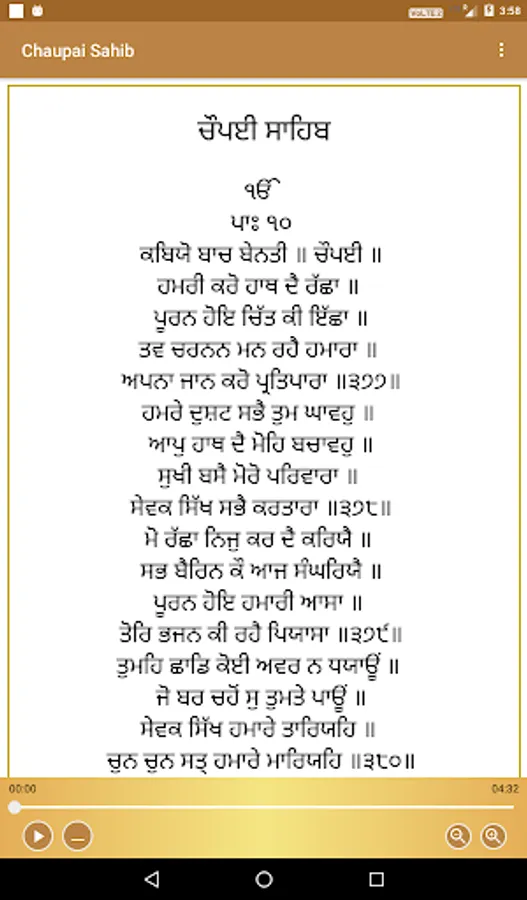 VOLTE 2 3:58
Chaupai Sahib
ਚੌਪਈ ਸਾਹਿਬ
ੴ
ਪਾਃ ੧੦
ਕਬਿਯੋ ਬਾਚ ਬੇਨਤੀ ॥ ਚੌਪਈ ॥
ਹਮਰੀ ਕਰੋ ਹਾਥ ਦੈ ਰੱਛਾ ॥
ਪੂਰਨ ਹੋਇ ਚਿੱਤ ਕੀ ਇੱਛਾ ॥
ਤਵ ਚਰਨਨ ਮਨ ਰਹੈ ਹਮਾਰਾ ॥
ਅਪਨਾ ਜਾਨ ਕਰੋ ਪ੍ਰਤਿਪਾਰਾ ॥੩੭੭॥
ਹਮਰੇ ਦੁਸ਼ਟ ਸਭੈ ਤੁਮ ਘਾਵਹੁ ॥
ਆਪੁ ਹਾਥ ਦੈ ਮੋਹਿ ਬਚਾਵਹੁ ॥
ਸੁਖੀ ਬਸੈ ਮੋਰੋ ਪਰਿਵਾਰਾ ॥
ਸੇਵਕ ਸਿੱਖ ਸਭੈ ਕਰਤਾਰਾ ॥੩੭੮॥
ਮੋ ਰੱਛਾ ਨਿਜੁ ਕਰ ਦੈ ਕਰਿਯੈ ॥
ਸਭ ਬੈਰਿਨ ਕੌ ਆਜ ਸੰਘਰਿਯੈ ॥
ਪੂਰਨ ਹੋਇ ਹਮਾਰੀ ਆਸਾ ॥
ਤੋਰਿ ਭਜਨ ਕੀ ਰਹੈ ਪਿਯਾਸਾ ॥੩੭੯॥
ਤੁਮਹਿ ਛਾਡਿ ਕੋਈ ਅਵਰ ਨ ਧਯਾਊਂ ॥
ਜੋ ਬਰ ਚਹੋਂ ਸੁ ਤੁਮਤੇ ਪਾਊਂ ॥
ਸੇਵਕ ਸਿੱਖ ਹਮਾਰੇ ਤਾਰਿਯਹਿ ॥
ਚੁਨ ਚੁਨ ਸਤ੍ਰ ਹਮਾਰੇ ਮਾਰਿਯਹਿ ॥੩੮੦॥
00:00 04:32